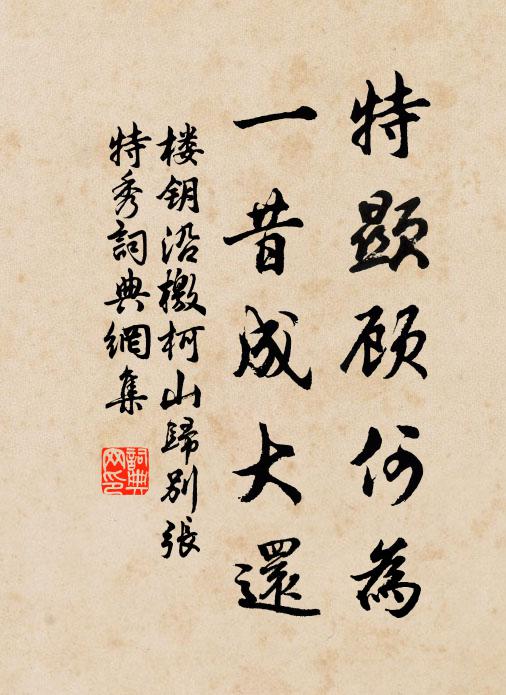 特顯顧何為
一昔成大還
楼钥沿檄柯山歸別張
特秀詞典網集
詞典
网印